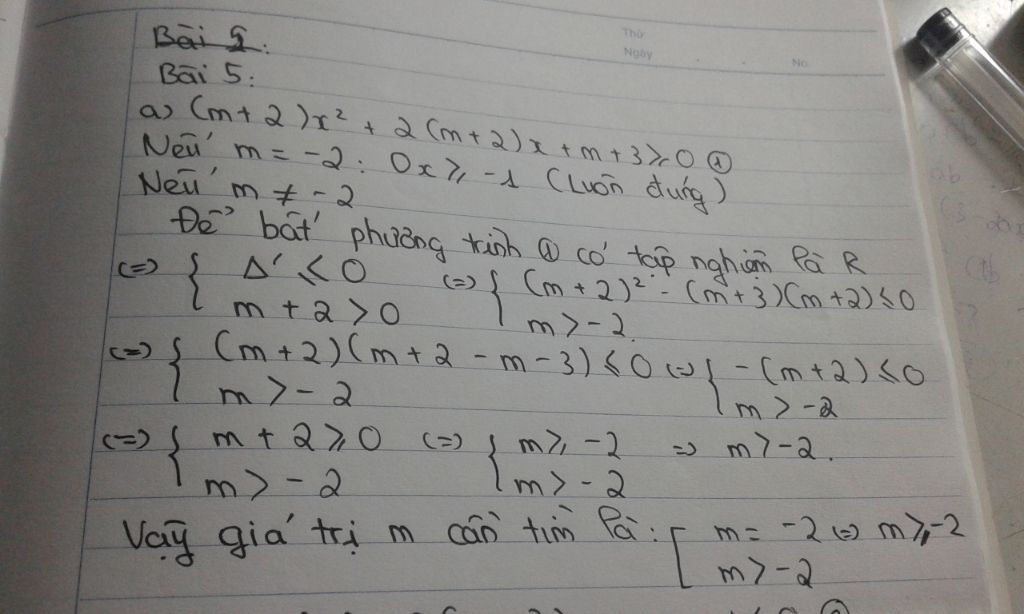 Thứ
Ngày
No.
Bài 5:
a) (m+2)x² + 2(m+2)x + m+3 ≥ 0 ①
Nếu m = -2 : 0x ≥ -1 (Luôn đúng)
Nếu m ≠ -2
Để bất phương trình ① có tập nghiệm là R
<=> { Δ' ≤ 0 <=> { (m+2)² - (m+3)(m+2) ≤ 0
m+2 > 0 m > -2.
<=> { (m+2)(m+2-m-3) ≤ 0 <=> { -(m+2) ≤ 0
m > -2 m > -2
<=> { m+2 ≥ 0 <=> { m ≥ -2 => m > -2.
m > -2 m > -2
Vậy giá trị m cần tìm là: [ m = -2 <=> m ≥ -2
m > -2